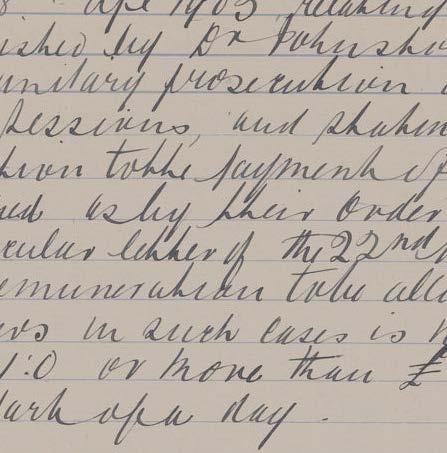 8 Apl 1903 relating
ished by Dr Johnsto
anitary prosecution
Sessions, and statem
tion to the payment of
ued as by their Order
cular letter of the 22nd
emuneration to be allo
ers in such cases is
1:0 or more than £
part of a day.